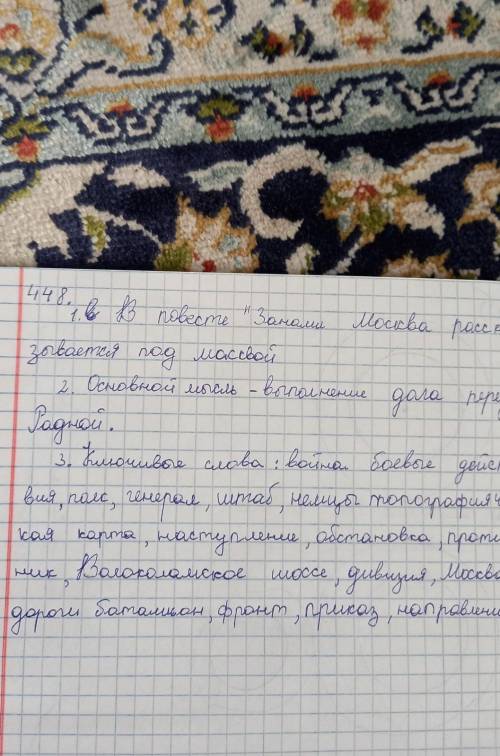 448.
1. в В повесте "Занами Москва расск
зывается под массвой
2. Основной мысль - выполнение дола пере
Радной.
3. Ключивые слова: война боевые дейс
вия, полк, генерал, штаб, немцы топографич
кая карта, наступление, обстановка, проти
ник, Волоколамское шоссе, дивизия, Москва
дороги батальон, фронт, приказ, направлени